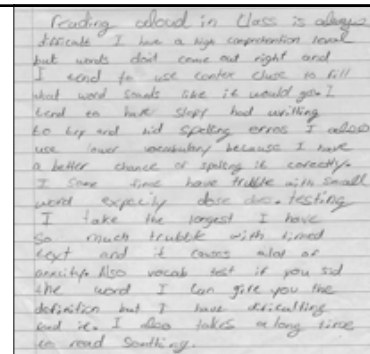 Reading aloud in Class is always
difficult I have a high comprehention level
but words don't come out right and
I tend to use contex cluse to fill
what word sounds like it would go. I
tend to have slopy had writting
to try and hid spelling erros I also
use lower vocabulary because I have
a better chance of spelling it corectly.
I some time have trubble with small
word expecily dose does. testing
I take the longest I have
so much trubble with timed
text and it causes alot of
anxiity. Also vocab test if you sid
the word I can give you the
definition but I have dificulting
it. I also takes a long time
to read somthing.